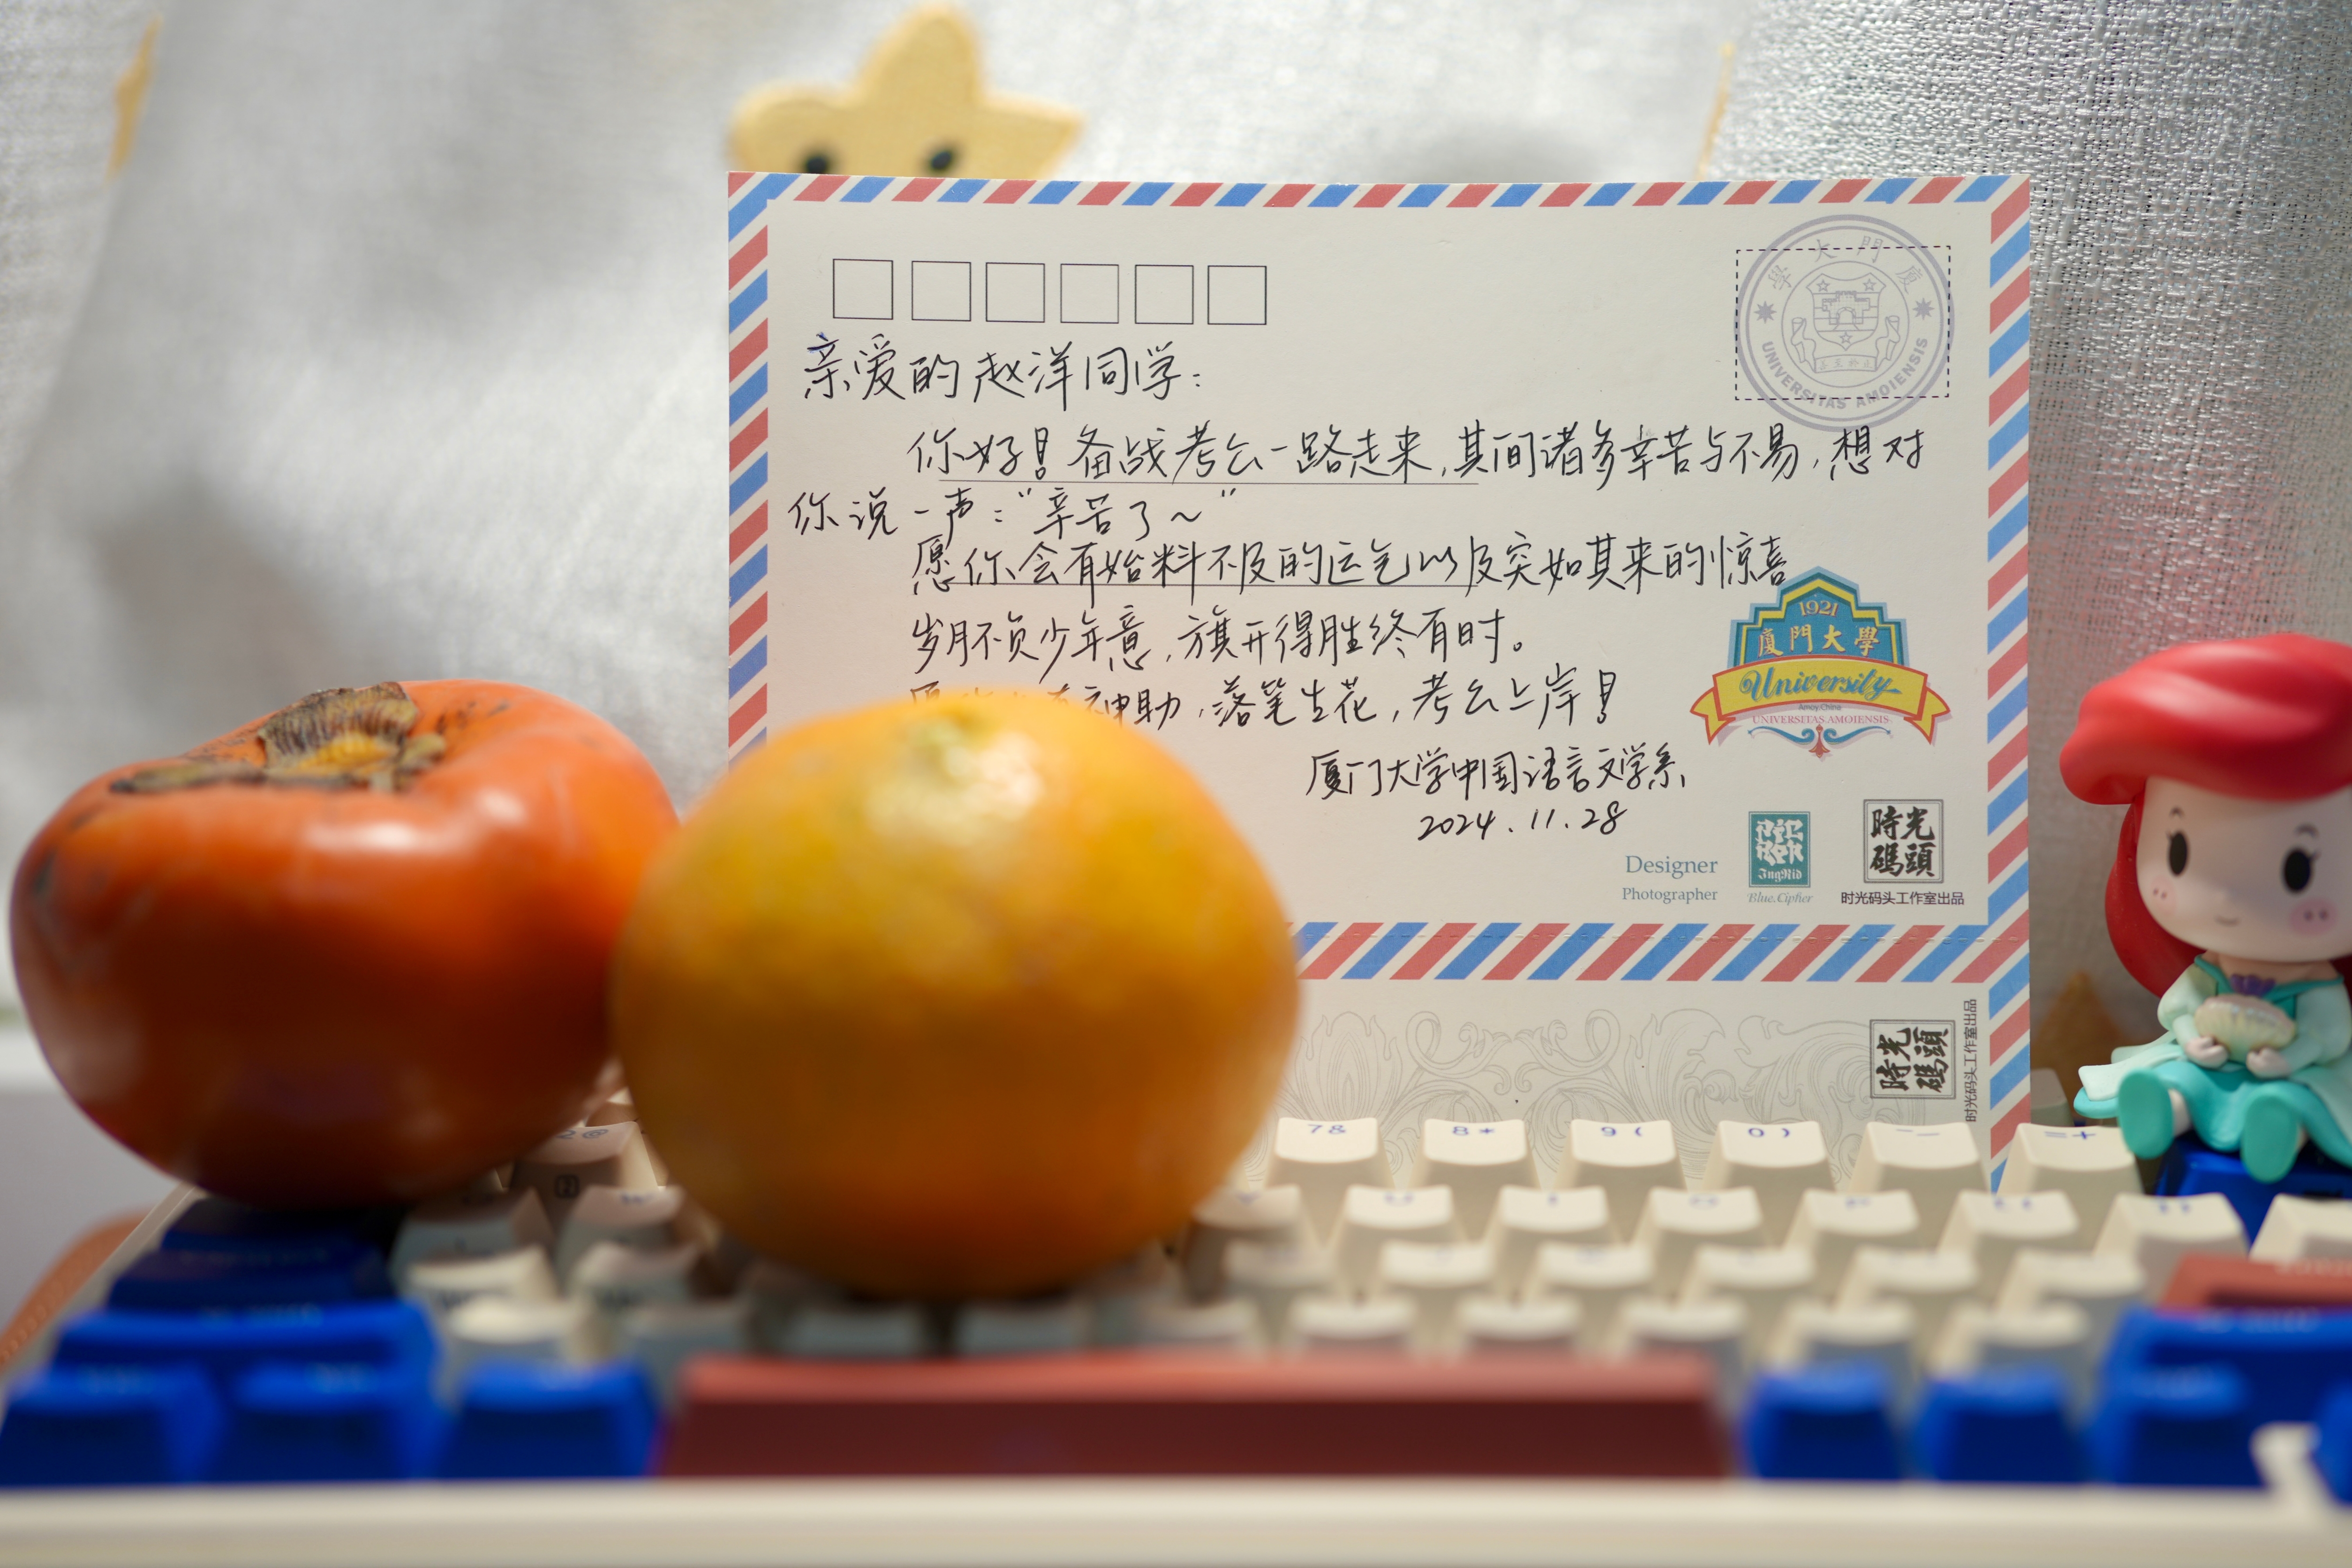 廈門大學
UNIVERSITAS AMOIENSIS
亲爱的赵洋同学:
你好!备战考公一路走来,其间诸多辛苦与不易,想对
你说一声:“辛苦了~”
愿你会有始料不及的运气以及突如其来的惊喜
岁月不负少年意,旗开得胜终有时。
神助,落笔生花,考公上岸!
厦门大学中国语言文学系
2024.11.28
1921
廈門大學
University
Amoy.China
UNIVERSITAS AMOIENSIS
Designer
Photographer
IngRid
Blue.Cipher
時光
碼頭
时光码头工作室出品
時光
碼頭
时光码头工作室出品
2@
7& 8* 9( 0) =+